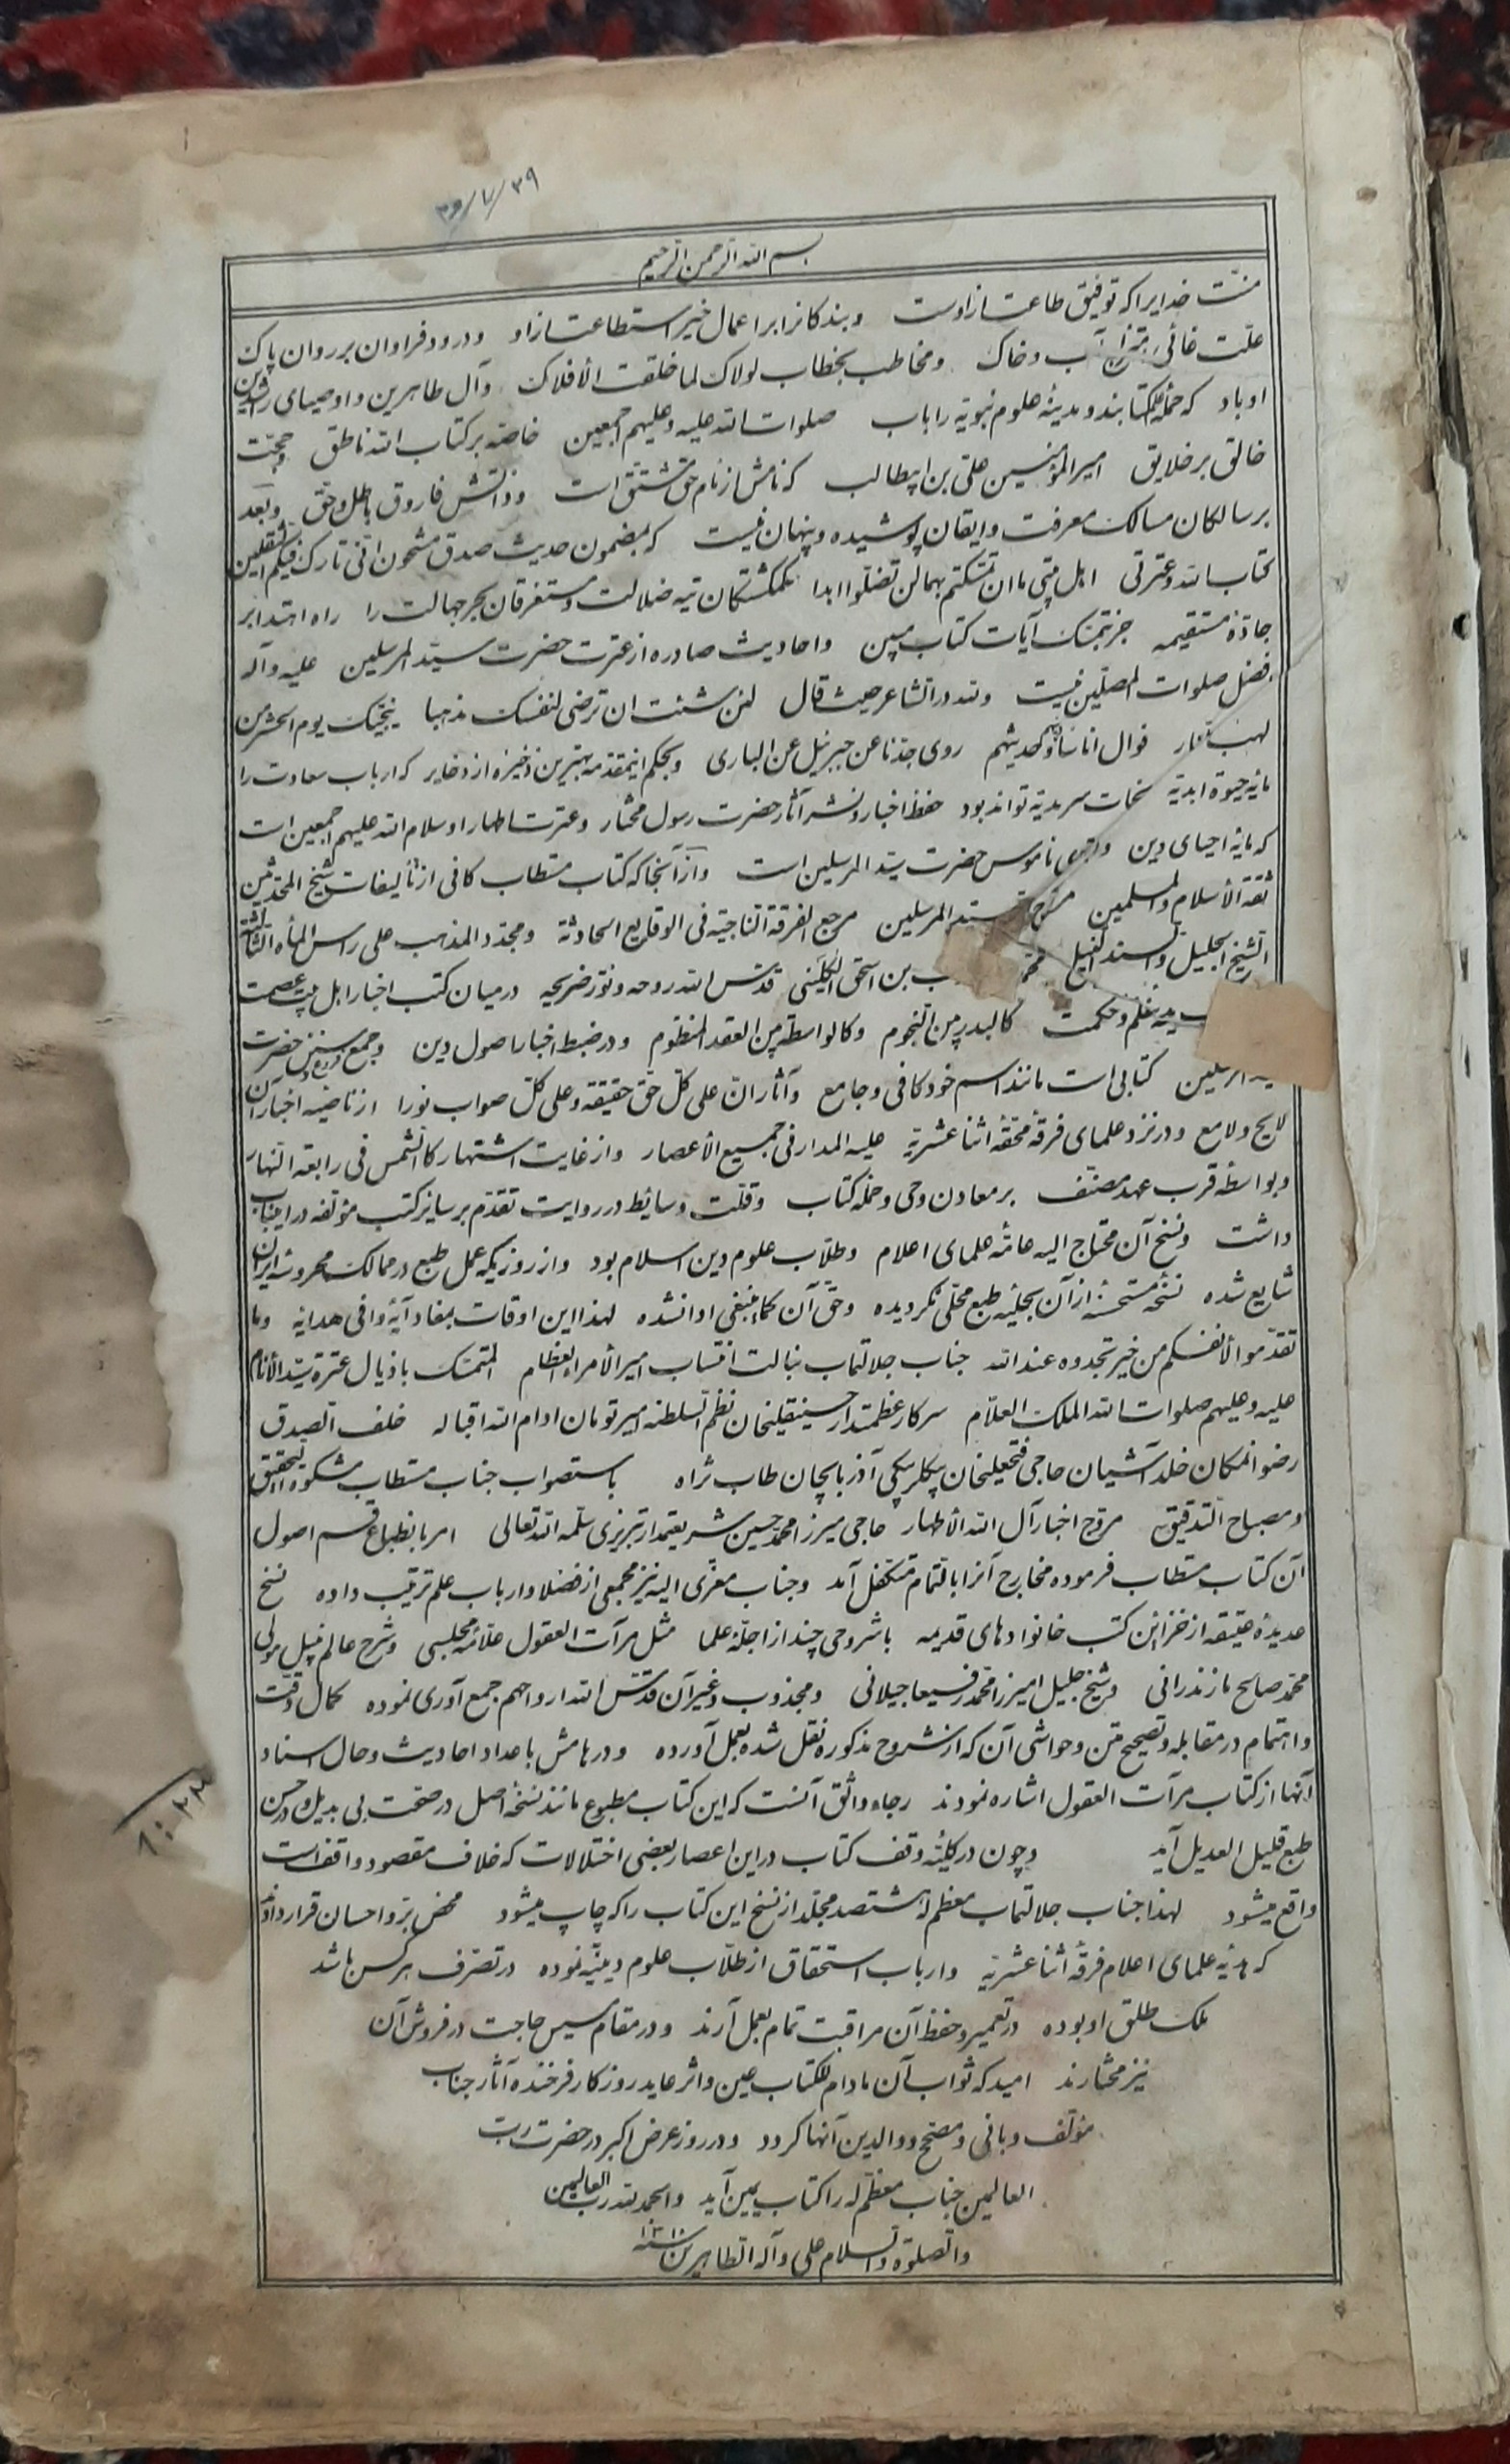 ۳۶/۷/۲۹
بسم الله الرحمن الرحیم
منت خدایرا که توفیق طاعت ازاوست وبندکانرا بر اعمال خیر استطاعت ازاو ودرود فراوان بر روان پاک
علّت غائی آب وخاک ومخاطب بخطاب لولاک لما خلقت الأفلاک وآل طاهرین واوصیای راشدین
اوباد که حملهٔ کتابند ومدینهٔ علوم نبویّه را باب صلوات الله علیه وعلیهم اجمعین خاصّه بر کتاب الله ناطق وحجّت
خالق بر خلایق امیرالمؤمنین علیّ بن ابیطالب که نامش از نام حق مشتق است وذاتش فاروق باطل وحق وبعد
بر سالکان مسالک معرفت وایقان پوشیده وپنهان نیست که بمضمون حدیث صدق مشحون انّی تارک فیکم الثقلین
کتاب الله وعترتی اهل بیتی ما ان تمسّکتم بهما لن تضلّوا ابدا کمکشتکان تیه ضلالت ومستغرقان بحر جهالت را راه اهتدا بر
جادّهٔ مستقیمه جز تمسّک آیات کتاب مبین واحادیث صادره از عترت حضرت سیّد المرسلین علیه وآله
افضل صلوات المصلّین نیست ولله درّ الشاعر حیث قال لئن شئت ان ترضی لنفسک مذهبا ینجّیک یوم الحشر من
لهب النار فوال اناسا قولهم وحدیثهم روی جدّنا عن جبرئیل عن الباری وبحکم اینمقدّمه بهترین ذخیره از ذخایر که ارباب سعادت را
مایهٔ حیوة ابدیّه نجات سرمدیّه تواند بود حفظ اخبار ونشر آثار حضرت رسول مختار وعترت اطهار اوسلام الله علیهم اجمعین است
که مایهٔ احیای دین ناموس حضرت سیّد المرسلین است وازآنجاکه کتاب مستطاب کافی از تألیفات شیخ المحدّثین
ثقة الأسلام والمسلمین سیّد المرسلین مرجع الفرقة النّاجیّه فی الوقایع الحادثة ومجدّد المذهب علی راس المأة الثالثة
الشیخ الجلیل والسند النبیل ب بن اسحق الکلینی قدّس الله روحه ونوّر ضریحه در میان کتب اخبار اهل بیت عصمت
علم وحکمت کالبدر بین النجوم وکالواسطة بین العقد المنظوم ودر ضبط اخبار اصول دین وجمع فروع وسنن حضرت
المرسلین کتابی است مانند اسم خود کافی وجامع وآثار انّ علی کلّ حقّ حقیقه وعلی کلّ صواب نورا از ناصیه اخبار آن
لایح ولامع ودر نزد علمای فرقهٔ محقّهٔ اثنا عشریّه علیه المدار فی جمیع الأعصار واز غایت اشتهار کالشّمس فی رابعة النهار
وبواسطهٔ قرب عهد مصنّف بر معادن وحی وحملهٔ کتاب وقلّت وسایط در روایت تقدّم بر سایر کتب مؤلّفه دراینباب
داشت ونسخ آن محتاج الیه عامّهٔ علمای اعلام وطلّاب علوم دین اسلام بود واز روزیکه عمل طبع در ممالک محروسهٔ ایران
شایع شده نسخهٔ مستحسنهٔ ازآن بحلیهٔ طبع محلّی نکردیده وحقّ آن کما ینبغی ادا نشده لهذا این اوقات بمفاد آیهٔ وافی هدایه وما
تقدّموا لأنفسکم من خیر تجدوه عند الله جناب جلالتمآب نبالت انتساب امیرالأمراء العظام المتمسّک باذیال عترة سیّد الأنام
علیه وعلیهم صلوات الله الملک العلّام سرکار عظمتمدار حسینقلیخان نظم السلطنه امیر تومان ادام الله اقباله خلف الصدق
رضوانمکان خلد آشیان حاجی فتحعلیخان بیکلربیکی آذربایجان طاب ثراه باستصواب جناب مستطاب مشکوة التحقیق
ومصباح التّدقیق مروّج اخبار آل الله الأطهار حاجی میرزا محمّد حسین شریعتمدار تبریزی سلّمه الله تعالی امر بانطباع قسم اصول
آن کتاب مستطاب فرموده مخارج آنرا بالتّمام متکفّل آمد وجناب معزّی الیه نیز مجمعی از فضلا وارباب علم ترتیب داده نسخ
عدیدهٔ عتیقه از خزاین کتب خانوادهای قدیمه با شروحی چند از اجلّهٔ علما مثل مرآت العقول علّامهٔ مجلسی وشرح عالم نبیل مولی
محمّد صالح مازندرانی وشیخ جلیل امیرزا محمّد رفیعا جیلانی ومجذوب وغیرآن قدّس الله ارواحهم جمع آوری نموده کمال دقّت
واهتمام در مقابله وتصحیح متن وحواشی آن که از شروح مذکوره نقل شده بعمل آورده ودر هامش باعداد احادیث وحال اسناد
آنها از کتاب مرآت العقول اشاره نمودند رجاء واثق آنست که این کتاب مطبوع مانند نسخهٔ اصل در صحّت بی بدیل ودر حسن
طبع قلیل العدیل آید وچون در کلیّهٔ وقف کتاب دراین اعصار بعضی اختلالات که خلاف مقصود واقف است
واقع میشود لهذا جناب جلالتمآب معظم له هشتصد مجلّد از نسخ این کتاب را که چاپ میشود محض برّ واحسان قرار دادند
که هدیهٔ علمای اعلام فرقهٔ اثنا عشریّه وارباب استحقاق از طلّاب علوم دینیّه نموده در تصرّف هرکس باشد
ملک طلق او بوده در تعمیر وحفظ آن مراقبت تمام بعمل آرند ودر مقام مسیس حاجت در فروش آن
نیز مختارند امید که ثواب آن مادام للکتاب عین واثر عاید روزکار فرخنده آثار جناب
مؤلّف وبانی ومصحّح ووالدین آنها کردد ودر روز عرض اکبر در حضرت ربّ
العالمین جناب معظّم له را کتاب یمین آید والحمد لله ربّ العالمین
والصلوة والسّلام علی وآله الطاهرین سنه ۱۳۱۰
۲۲:۱۰